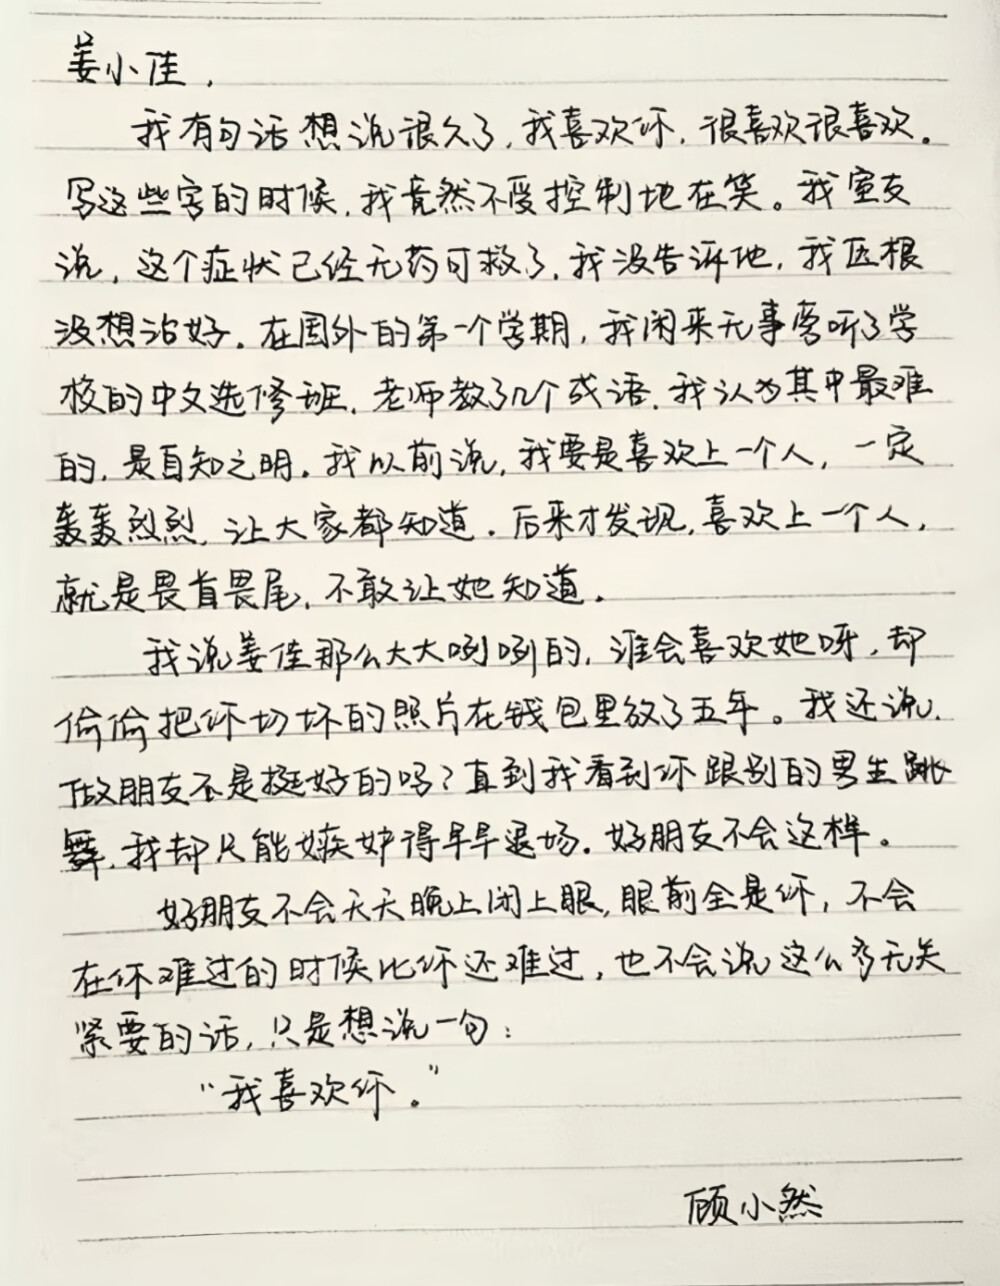 姜小佳，
我有句话想说很久了，我喜欢你，很喜欢很喜欢。
写这些字的时候，我竟然不受控制地在笑。我室友
说，这个症状已经无药可救了，我没告诉他，我压根
没想治好。在国外的第一个学期，我闲来无事旁听了学
校的中文选修班，老师教了几个成语，我认为其中最难
的，是自知之明。我以前说，我要是喜欢上一个人，一定
轰轰烈烈，让大家都知道。后来才发现，喜欢上一个人，
就是畏首畏尾，不敢让她知道。
我说姜佳那么大大咧咧的，谁会喜欢她呀，却
偷偷把你切坏的照片在钱包里放了五年。我还说，
做朋友不是挺好的吗？直到我看到你跟别的男生跳
舞，我却只能嫉妒得早早退场。好朋友不会这样。
好朋友不会天天晚上闭上眼，眼前全是你，不会
在你难过的时候比你还难过，也不会说这么多无关
紧要的话，只是想说一句：
“我喜欢你。”
顾小然